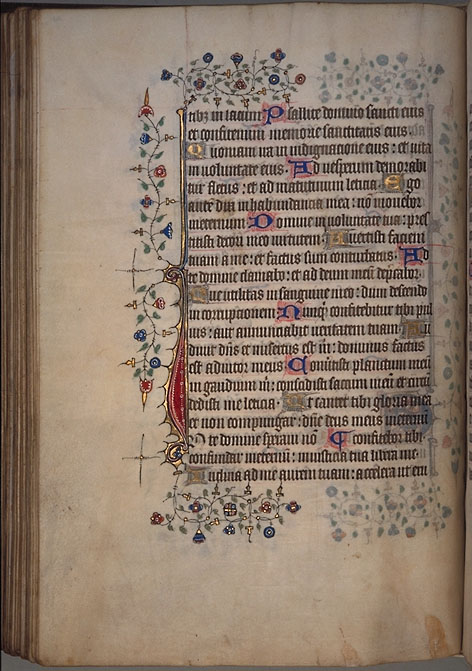 tibꝫ in lacum Psallite domino sancti eius
et confitemini memorie sanctitatis eius
Quoniam ira in indignacione eius : et uita
in uoluntate eius. Ad uesperum demorabi
tur fletus : et ad matutinum leticia. Ego
autē dixi in habundancia mea : nō mouebor
in eternum Domine in uoluntate tua : pres
titisti decori meo uirtutem. Auertisti faciem
tuam a me : et factus sum conturbatus. Ad
te domine clamabo : et ad deum meū dep̄cabor.
Que utilitas in sanguine meo : dum descendo
in corrupcionem Nunqͥd confitebitur tibi pul
uis : aut annunciabit ueritatem tuam Au
diuit dn̄s et misertus est m̄ : dominus factus
est adiutor meus Conuertisti planctum meū
in gaudium m̄ : conscidisti saccum meū et circū
dedisti me leticia. Ut cantet tibi gloria mea
et non compungar : dn̄e deus meus in eternū
confitebor tibi. In te domine speraui nō
confundar in eternum : in iusticia tua libera me
Inclina ad me aurem tuam : accelera ut eru